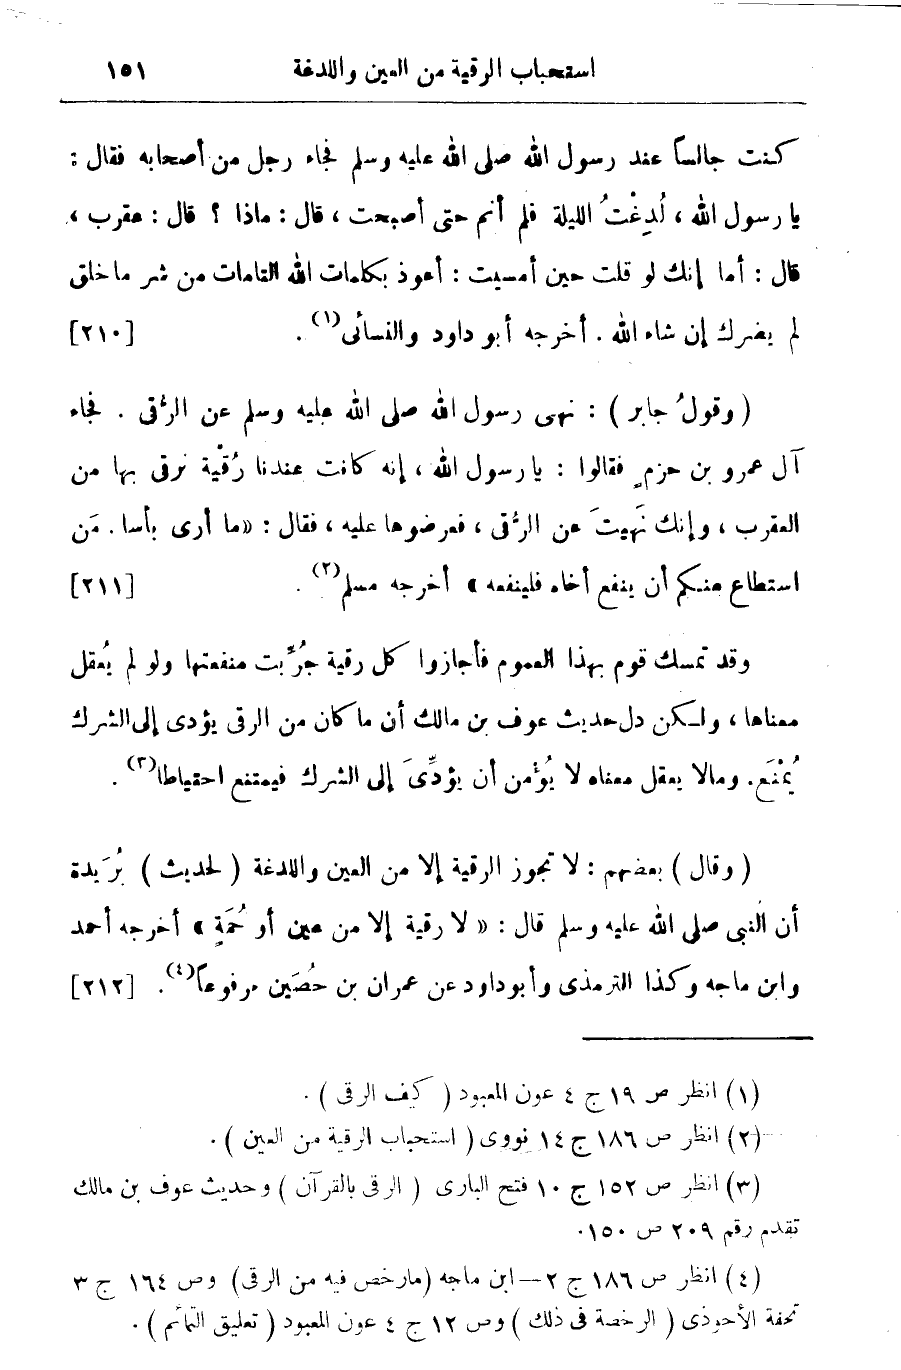 استحباب الرقية من العين واللدغة ١٥١
كنت جالساً عند رسول الله صلى الله عليه وسلم فجاء رجل من أصحابه فقال :
يا رسول الله ، لُدِغْتُ الليلة فلم أنم حتى أصبحت ، قال : ماذا ؟ قال : عقرب ،
قال : أما إنك لو قلت حين أمسيت : أعوذ بكلمات الله التامات من شر ما خلق
لم يضرك إن شاء الله . أخرجه أبو داود والنسائى(١) . [٢١٠]
( وقولُ جابر ) : نهى رسول الله صلى الله عليه وسلم عن الرُّقى . فجاء
آل عمرو بن حزم فقالوا : يا رسول الله ، إنه كانت عندنا رُقْية نرقى بها من
العقرب ، وإنك نَهيتَ عن الرُّقى ، فعرضوها عليه ، فقال : «ما أرى بأسا . مَن
استطاع منكم أن ينفع أخاه فلينفعه » أخرجه مسلم(٢) . [٢١١]
وقد تمسك قوم بهذا العموم فأجازوا كل رقية جُرِّبت منفعتها ولو لم يُعقل
معناها ، ولكن دل حديث عوف بن مالك أن ما كان من الرقى يؤدى إلى الشرك
يُمْنَع. ومالا يعقل معناه لا يُؤْمن أن يؤدِّىَ إلى الشرك فيمتنع احقياطا(٣) .
( وقال ) بعضهم : لا تجوز الرقية إلا من العين واللدغة ( لحديث ) بُرَيدة
أن النبى صلى الله عليه وسلم قال : « لا رقية إلا من عين أو حُمَةٍ » أخرجه أحمد
وابن ماجه وكذا الترمذى وأبو داود عن عمران بن حصَين مرفوعاً(٤) . [٢١٢]
(١) انظر ص ١٩ ج ٤ عون المعبود ( كيف الرقى ) .
(٢) انظر ص ١٨٦ ج ١٤ نووى ( استحباب الرقية من العين ) .
(٣) انظر ص ١٥٢ ج ١٠ فتح البارى ( الرقى بالقرآن ) وحديث عوف بن مالك
تقدم رقم ٢٠٩ ص ١٥٠.
(٤) انظر ص ١٨٦ ج ٢ – ابن ماجه (مارخص فيه من الرقى) وص ١٦٤ ج ٣
تحفة الأحوذى ( الرخصة فى ذلك ) وص ١٢ ج ٤ عون المعبود ( تعليق التمائم ) .